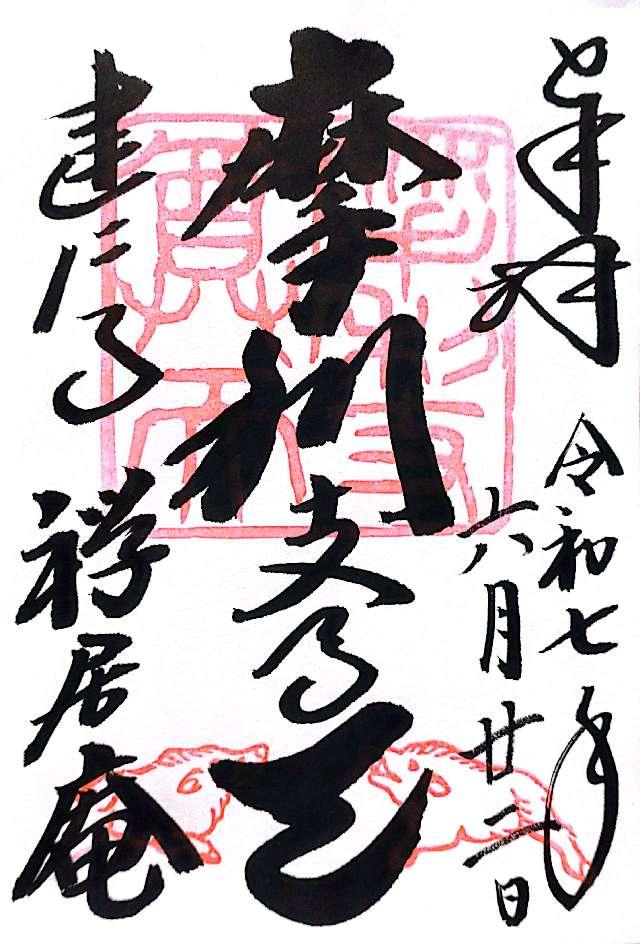 奉拝
令和七年
六月廿二日
摩利支尊天
建仁寺
禅居庵